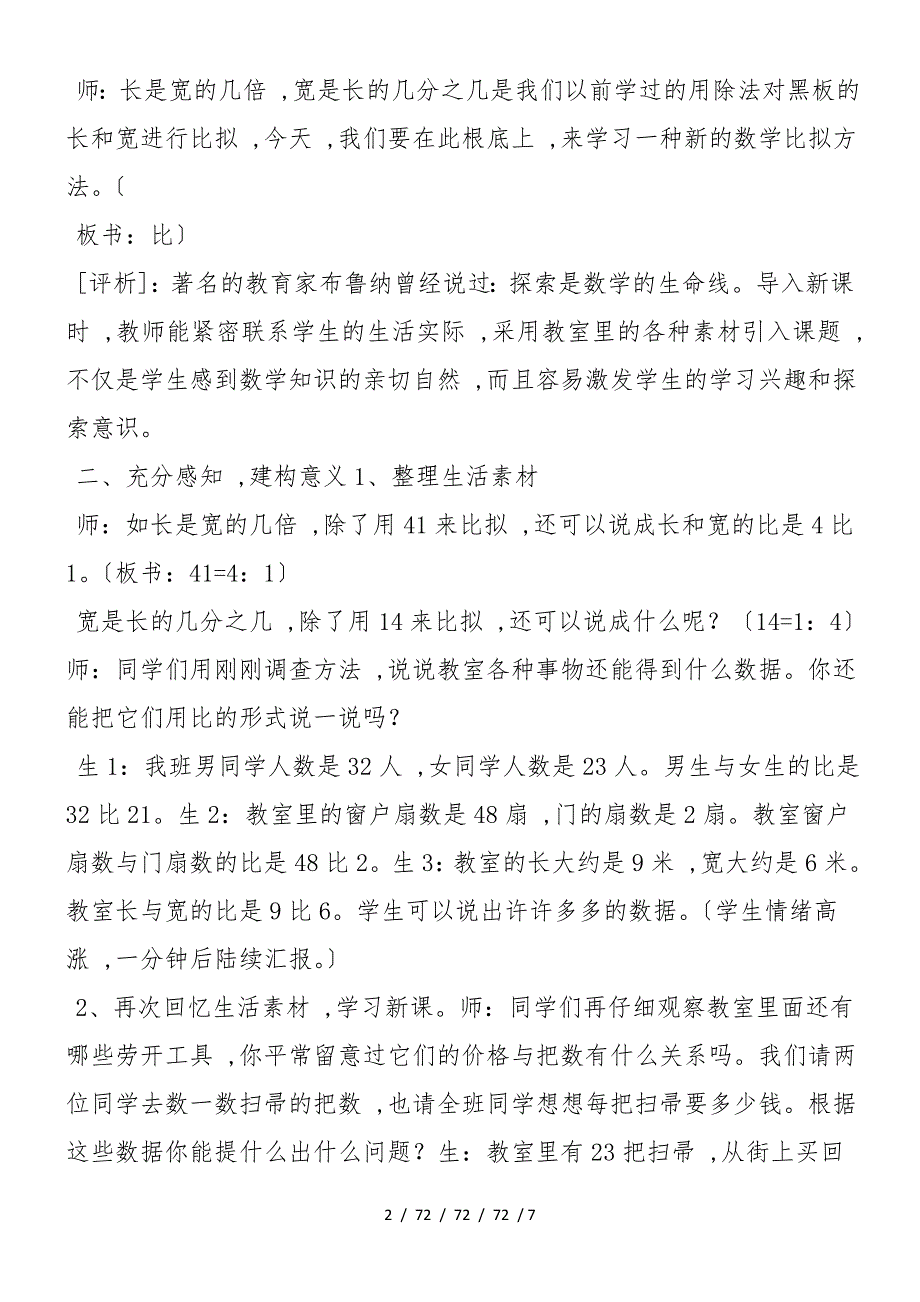 师：长是宽的几倍 ,宽是长的几分之几是我们以前学过的用除法对黑板的
长和宽进行比拟 ,今天 ,我们要在此根底上 ,来学习一种新的数学比拟方
法。〔
板书：比〕
[评析]：著名的教育家布鲁纳曾经说过：探索是数学的生命线。导入新课
时 ,教师能紧密联系学生的生活实际 ,采用教室里的各种素材引入课题 ,
不仅是学生感到数学知识的亲切自然 ,而且容易激发学生的学习兴趣和探
索意识。
二、充分感知 ,建构意义1、整理生活素材
师：如长是宽的几倍 ,除了用41来比拟 ,还可以说成长和宽的比是4比
1。〔板书：41=4：1〕
宽是长的几分之几 ,除了用14来比拟 ,还可以说成什么呢？〔14=1：4〕
师：同学们用刚刚调查方法 ,说说教室各种事物还能得到什么数据。你还
能把它们用比的形式说一说吗？
生1：我班男同学人数是32人 ,女同学人数是23人。男生与女生的比是
32比21。生2：教室里的窗户扇数是48扇 ,门的扇数是2扇。教室窗户
扇数与门扇数的比是48比2。生3：教室的长大约是9米 ,宽大约是6米。
教室长与宽的比是9比6。学生可以说出许许多多的数据。〔学生情绪高
涨 ,一分钟后陆续汇报。〕
2、再次回忆生活素材 ,学习新课。师：同学们再仔细观察教室里面还有
哪些劳开工具 ,你平常留意过它们的价格与把数有什么关系吗。我们请两
位同学去数一数扫帚的把数 ,也请全班同学想想每把扫帚要多少钱。根据
这些数据你能提什么出什么问题？生：教室里有23把扫帚 ,从街上买回
2 / 72 / 72 / 72 / 7